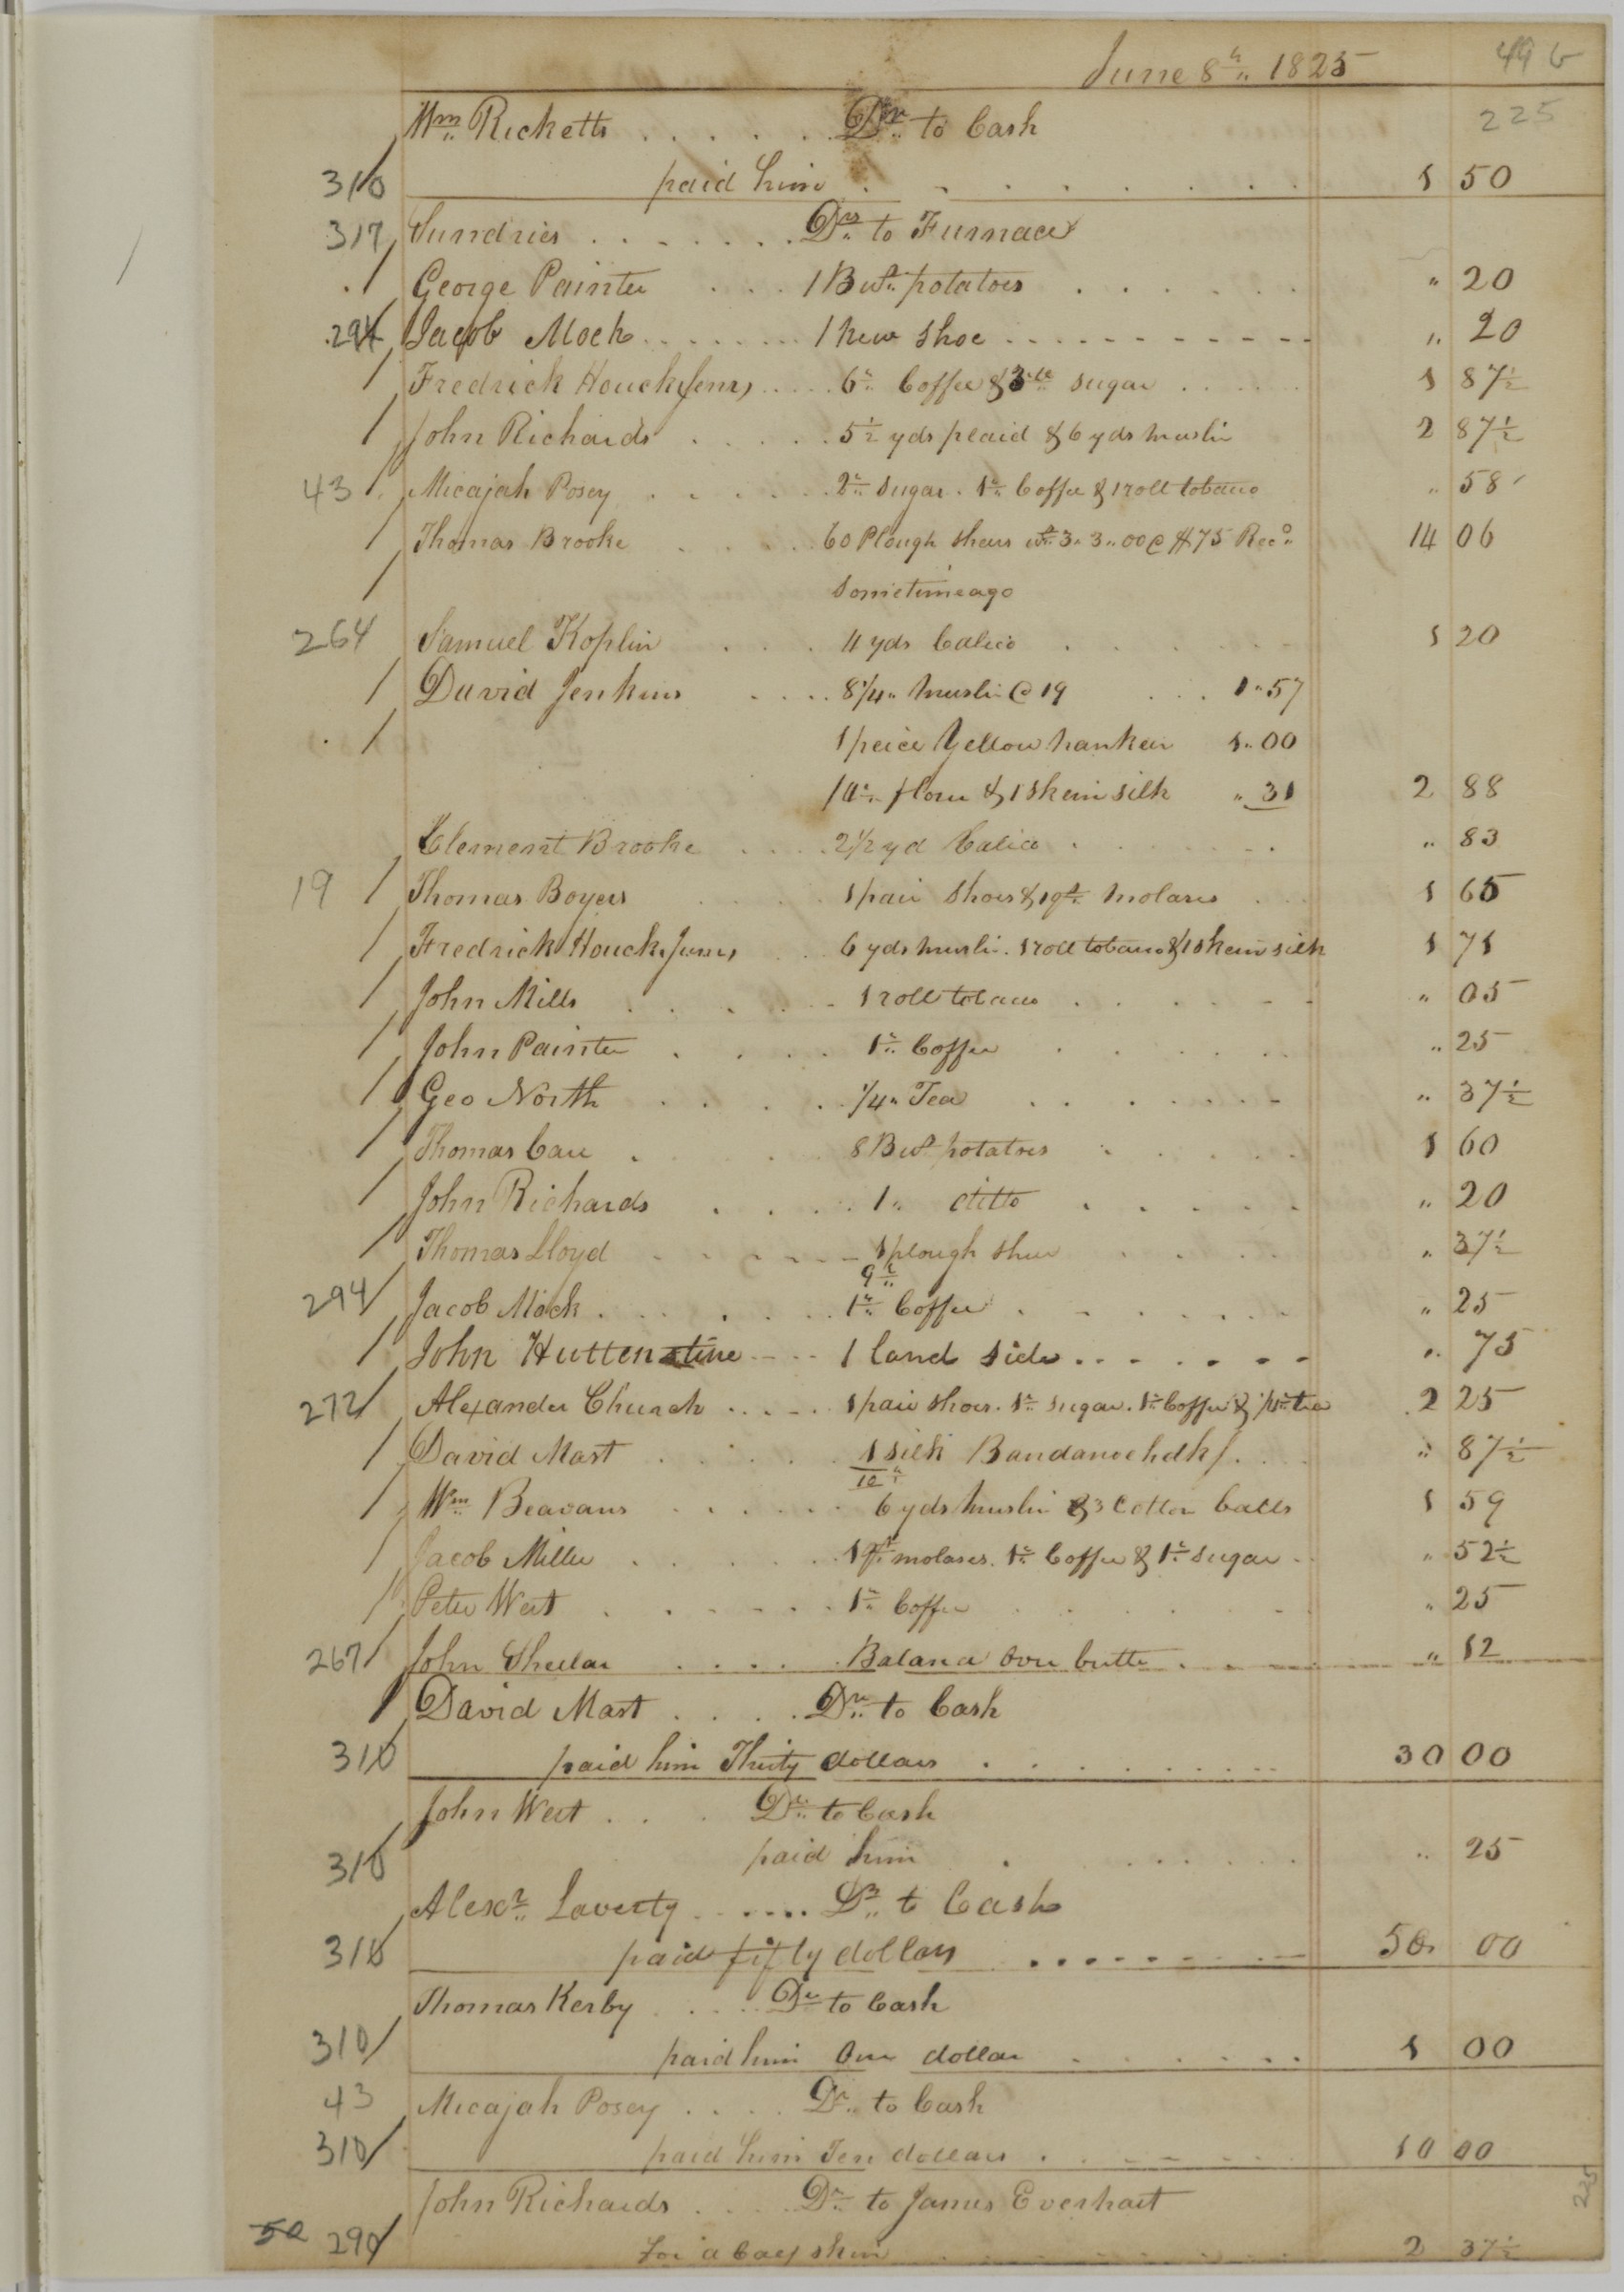 June 8th 1825 49 b
225
Wm Ricketts . . . . . . Dr to Cash
310 paid him . . . . . . . . 1 50
317 Sundries . . . . . . . Drs to Furnace
George Painter . . . 1 But potatoes . . . . . . " 20
294 Jacob Mock . . . . . . . 1 new shoe . . . . . . . . . . . " 20
Fredrick Houck (senr) . . . . . 6 lb Coffee & 3 lb sugar . . . . . 1 87½
John Richards . . . . . 5½ yds plaid & 6 yds muslin 2 87½
43 Micajah Posey . . . . . . 2 lb sugar. 1 lb Coffee & 1 roll tobacco " 58
Thomas Brooke . . . . . 60 Plough shears wt 3" 3" 00 @ $75 Recd 14 06
sometime ago
264 Samuel Koplin . . . 4 yds Calico . . . . . . 1 20
David Jenkins . . . . 8 1/4 " muslin @ 19 . . . 1" 57
1 peice Yellow nankeen 1" 00
1 qr flour & 1 skein silk " 31 2 88
Clement Brooke . . . . 2 1/2 yd Calico . . . . . . " 83
19 Thomas Boyers . . . . . 1 pair shoes & 1 qt molases . . . 1 65
Fredrick Houck (Junr) . . 6 yds muslin. 1 roll tobacco & 1 skein silk 1 71
John Mills . . . . . 1 roll tobacco . . . . . . " 05
John Painter . . . . 1 lb Coffee . . . . . . " 25
Geo North . . . . . 1/4 " Tea . . . . . . " 37½
Thomas Carr . . . . 8 But potatoes . . . . . 1 60
John Richards . . . . 1 " ditto . . . . . " 20
Thomas Lloyd . . . . . . 1 plough shear . . . . " 37½
9th
294 Jacob Mock . . . . . . . 1 lb Coffee . . . . . . " 25
John Huttenstine . . . . 1 land side . . . . . . . " 75
272 Alexander Church . . . . . 1 pair shoes. 1 lb sugar. 1 lb Coffee & 1/4 lb tea 2 25
David Mast . . . . . 1 silk Bandanoe hdkf . . . " 87½
10th
Wm Beavans . . . . . . 6 yds muslin & 3 Cotton balls 1 59
Jacob Miller . . . . . . 1 qt molases. 1 lb Coffee & 1 lb sugar . . " 52½
Peter Wert . . . . . . . 1 lb Coffee . . . . " 25
267 John Sheelar . . . . . Balance Over butter . . . " 12
David Mast . . . . Dr to Cash
310 paid him Thirty dollars . . . . . . . . . 30 00
John Wert . . . Dr to Cash
310 paid him . . . . . . . " 25
Alexr Laverty . . . . . . Dr to Cash
310 paid fifty dollars . . . . . . . . 50 00
Thomas Kerby . . . . Dr to Cash
310 paid him One dollar . . . . . . 1 00
43 Micajah Posey . . . . Dr to Cash
310 paid him Ten dollars . . . . . . 10 00
John Richards . . . . Dr to James Everhart
290 for a Calf skin . . . . . . . 2 37½
225